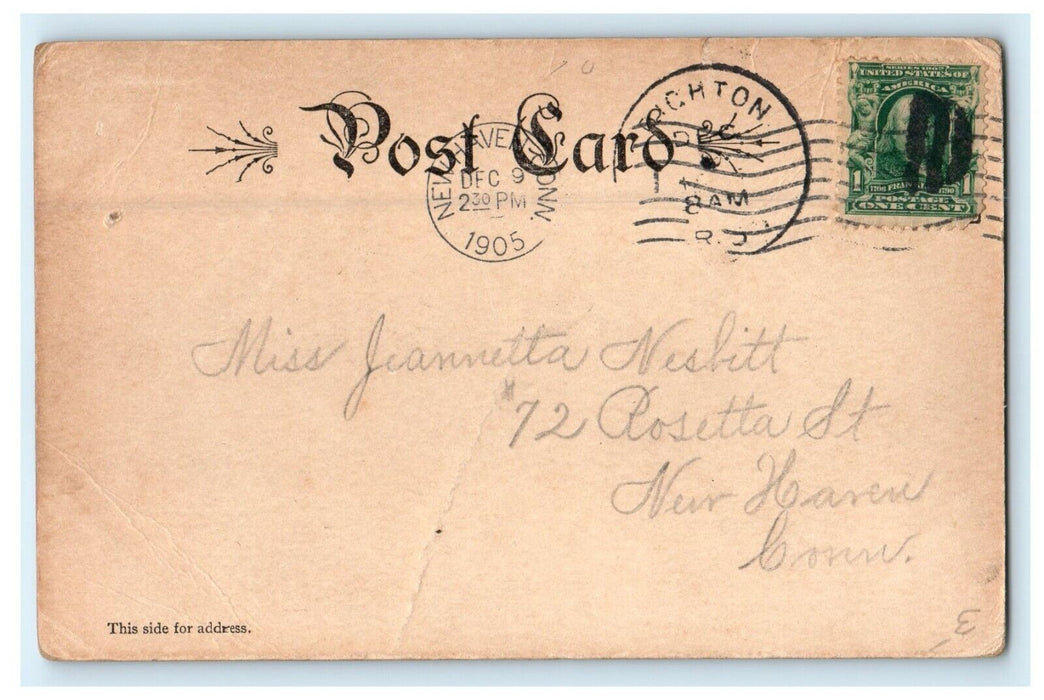 Post Card
NEW HAVEN CONN.
DEC 9
2 30 PM
1905
DEC
8 AM
R.I.
SERIES 1902
UNITED STATES OF
AMERICA
1 FRANKLIN 1
POSTAGE
ONE CENT
Miss Jeannetta Nesbitt
72 Rosetta St
New Haven
Conn.
This side for address.
3